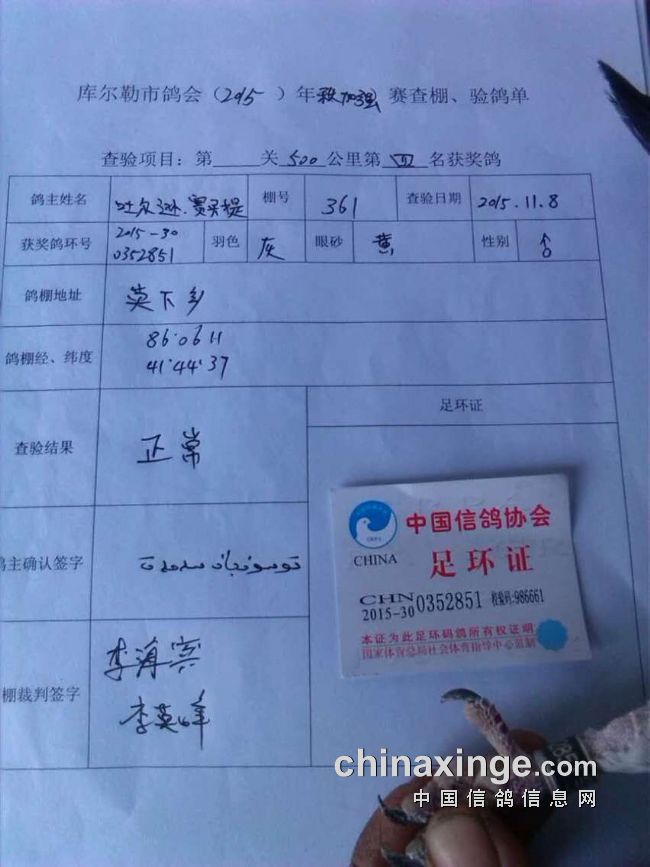 库尔勒市鸽会（2015）年秋加强赛查棚、验鸽单
查验项目：第 关 500 公里第 四 名获奖鸽
鸽主姓名 吐尔逊.赛买提 棚号 361 查验日期 2015.11.8
获奖鸽环号 2015-30 0352851 羽色 灰 眼砂 黄 性别 ♂
鸽棚地址 英下乡
鸽棚经、纬度 86·06 11
41·44·37
查验结果 正常 足环证
鸽主确认签字
棚裁判签字 李海宾
李英峰
中国信鸽协会
CHINA 足环证
CHN 2015-30 0352851 校验码:986661
本证为此足环码鸽所有权证明
国家体育总局社会体育指导中心监制
chinaxinge.com
中国信鸽信息网